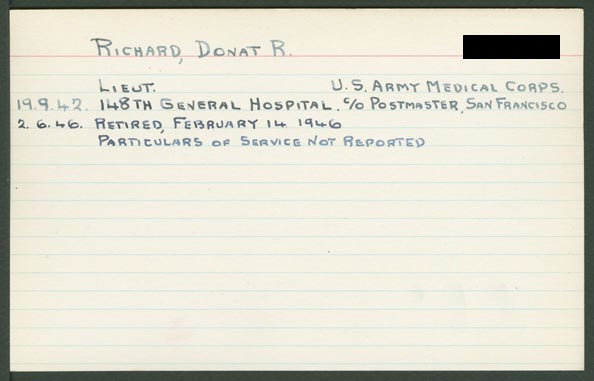 RICHARD, DONAT R.
LIEUT. U.S. ARMY MEDICAL CORPS.
19.9.42. 148TH GENERAL HOSPITAL. C/O POSTMASTER, SAN FRANCISCO
2.6.46. RETIRED, FEBRUARY 14 1946
PARTICULARS OF SERVICE NOT REPORTED